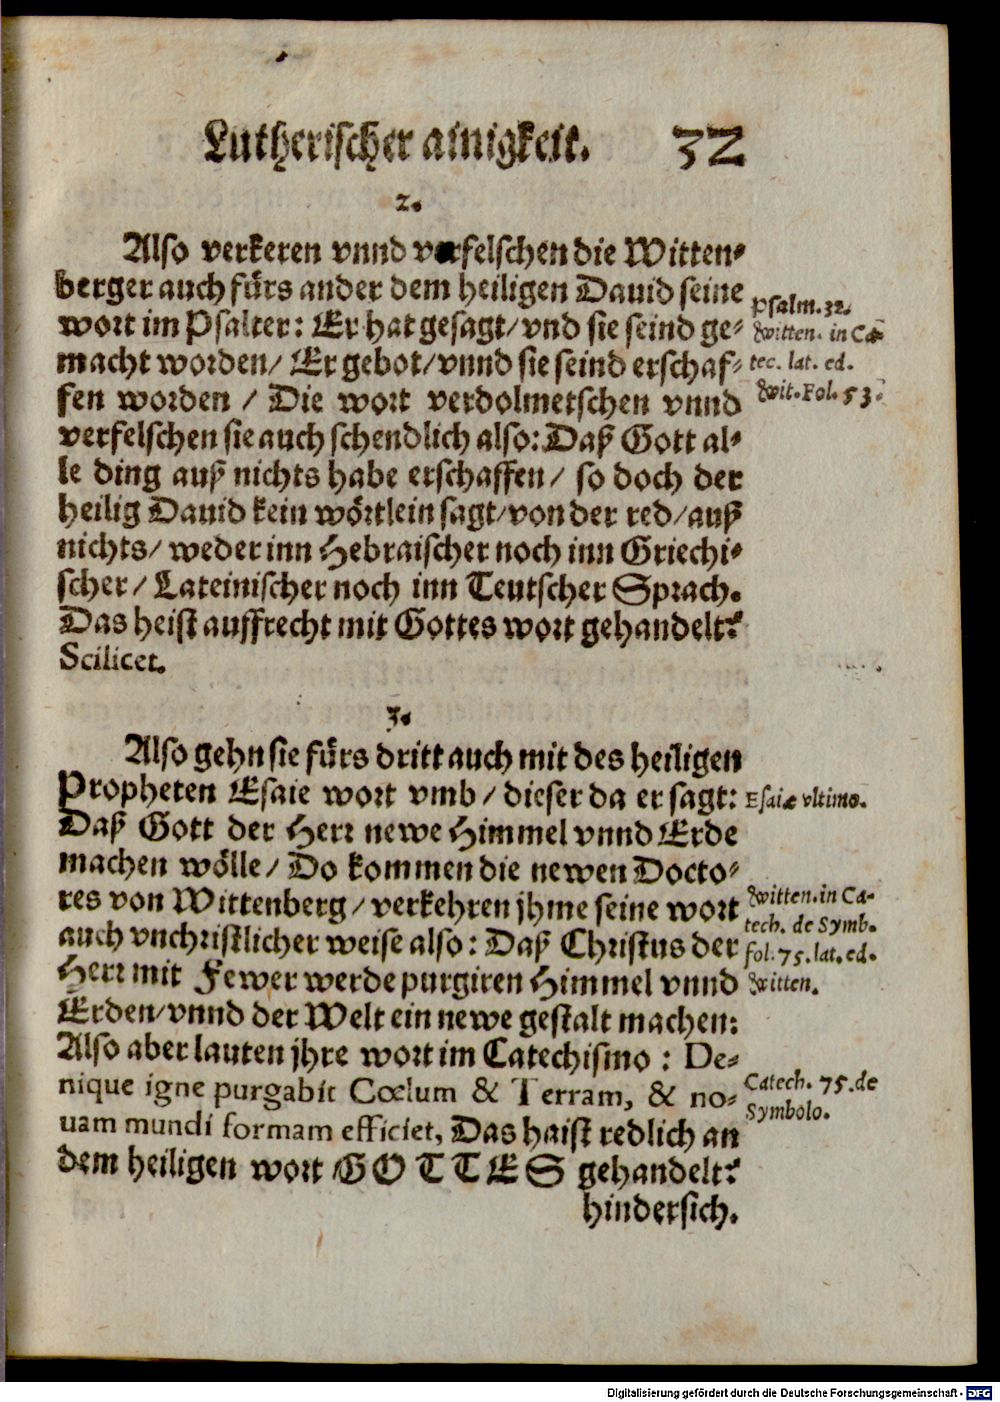 Lutherischer ainigkeit. 32
2.
Also verkeren vnnd verfelschen die Witten-
berger auch fürs ander dem heiligen Dauid seine
wort im Psalter: Er hat gesagt/ vnd sie seind ge-
macht worden/ Er gebot/ vnnd sie seind erschaf-
fen worden / Die wort verdolmetschen vnnd
verfelschen sie auch schendlich also: Daß Gott al-
le ding auß nichts habe erschaffen/ so doch der
heilig Dauid kein wörtlein sagt/ von der red/ auß
nichts/ weder inn Hebraischer noch inn Griechi-
scher/ Lateinischer noch inn Teutscher Sprach.
Das heist auffrecht mit Gottes wort gehandelt?
Scilicet.
Psalm. 32.
Witten. in Ca-
tec. lat. ed.
Wit. Fol. 53.
3.
Also gehn sie fürs dritt auch mit des heiligen
Propheten Esaie wort vmb / dieser da er sagt:
Daß Gott der Herr newe Himmel vnnd Erde
machen wölle/ Do kommen die newen Docto-
res von Wittenberg/ verkehren jhme seine wort
auch vnchristlicher weise also: Daß Christus der
Herr mit Fewer werde purgiren Himmel vnnd
Erden/ vnnd der Welt ein newe gestalt machen:
Also aber lauten jhre wort im Catechismo : De-
nique igne purgabit Cœlum & Terram, & no-
uam mundi formam efficiet, Das haist redlich an
dem heiligen wort GOTTES gehandelt?
hindersich.
Esaiæ vltimo.
Witten. in Ca-
tech. de Symb.
fol. 75. lat. ed.
Witten.
Catech. 75. de
Symbolo.
Digitalisierung gefördert durch die Deutsche Forschungsgemeinschaft - DFG